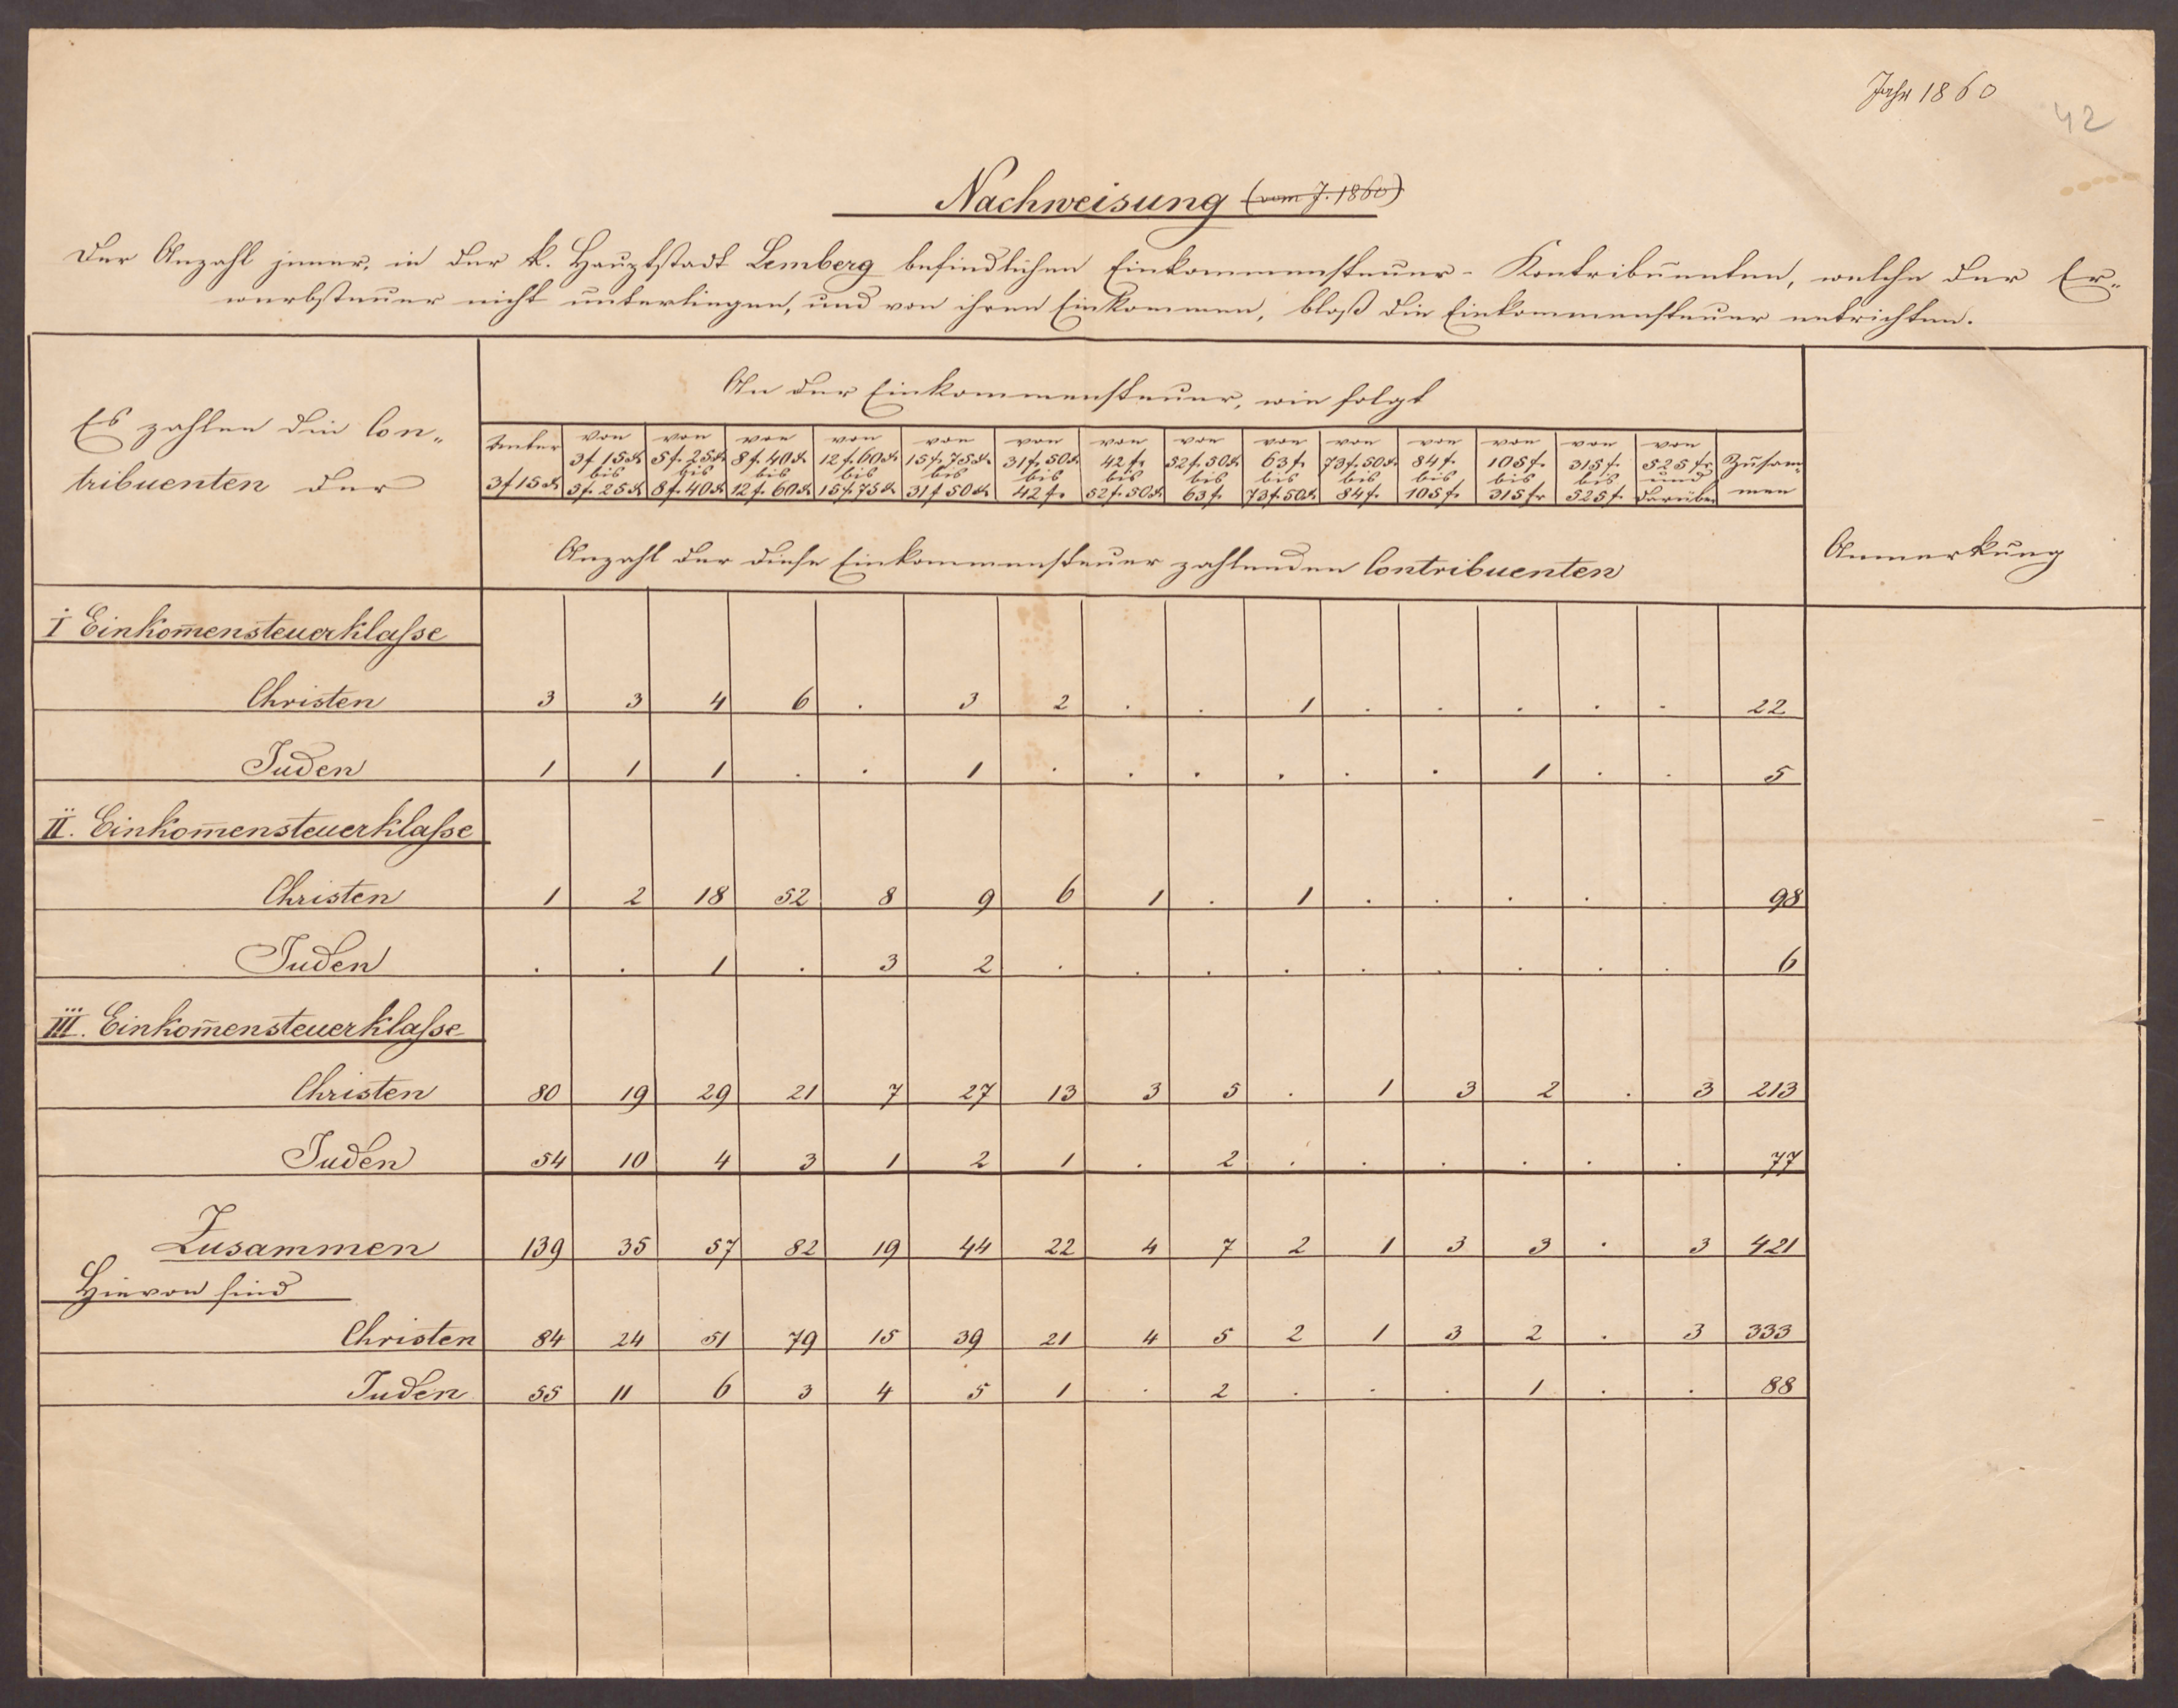 Jahr 1860
42
Nachweisung (vom J. 1860)
Der Anzahl jener, in der k. Hauptstadt Lemberg befindlichen Einkommensteuer-Kontribuenten, welche der Er„
werbsteuer nicht unterliegen, und von ihren Einkommen, bloß die Einkommensteuer entrichten.
Es zahlen die Con„
tribuenten der
An der Einkommensteuer, wie folgt
Unter 3f 15x
von 3f 15x bis 5f. 25x
von 5f. 25x bis 8f. 40x
von 8f. 40x bis 12f. 60x
von 12f. 60x bis 15f. 75x
von 15f. 75x bis 31f 50x
von 31f. 50x bis 42f.
von 42f. bis 52f. 50x
von 52f. 50x bis 63f.
von 63f. bis 73f. 50x
von 73f. 50x bis 84f.
von 84f. bis 105f.
von 105f. bis 315fr
von 315f. bis 525f.
von 525fr und darüber
Zusam- men
Anzahl der diese Einkommensteuer zahlenden Contribuenten
Anmerkung
I Einkom̅ensteuerklaſse
Christen 3 3 4 6 . 3 2 . . 1 . . . . . 22
Juden 1 1 1 . . 1 . . . . . . 1 . . 5
II. Einkom̅ensteuerklaſse
Christen 1 2 18 52 8 9 6 1 . 1 . . . . . 98
Juden . . 1 . 3 2 . . . . . . . . . 6
III. Einkom̅ensteuerklaſse
Christen 80 19 29 21 7 27 13 3 5 . 1 3 2 . 3 213
Juden 54 10 4 3 1 2 1 . 2 . . . . . . 77
Zusammen 139 35 57 82 19 44 22 4 7 2 1 3 3 . 3 421
Hievon sind
Christen 84 24 51 79 15 39 21 4 5 2 1 3 2 . 3 333
Juden 55 11 6 3 4 5 1 . 2 . . . 1 . . 88